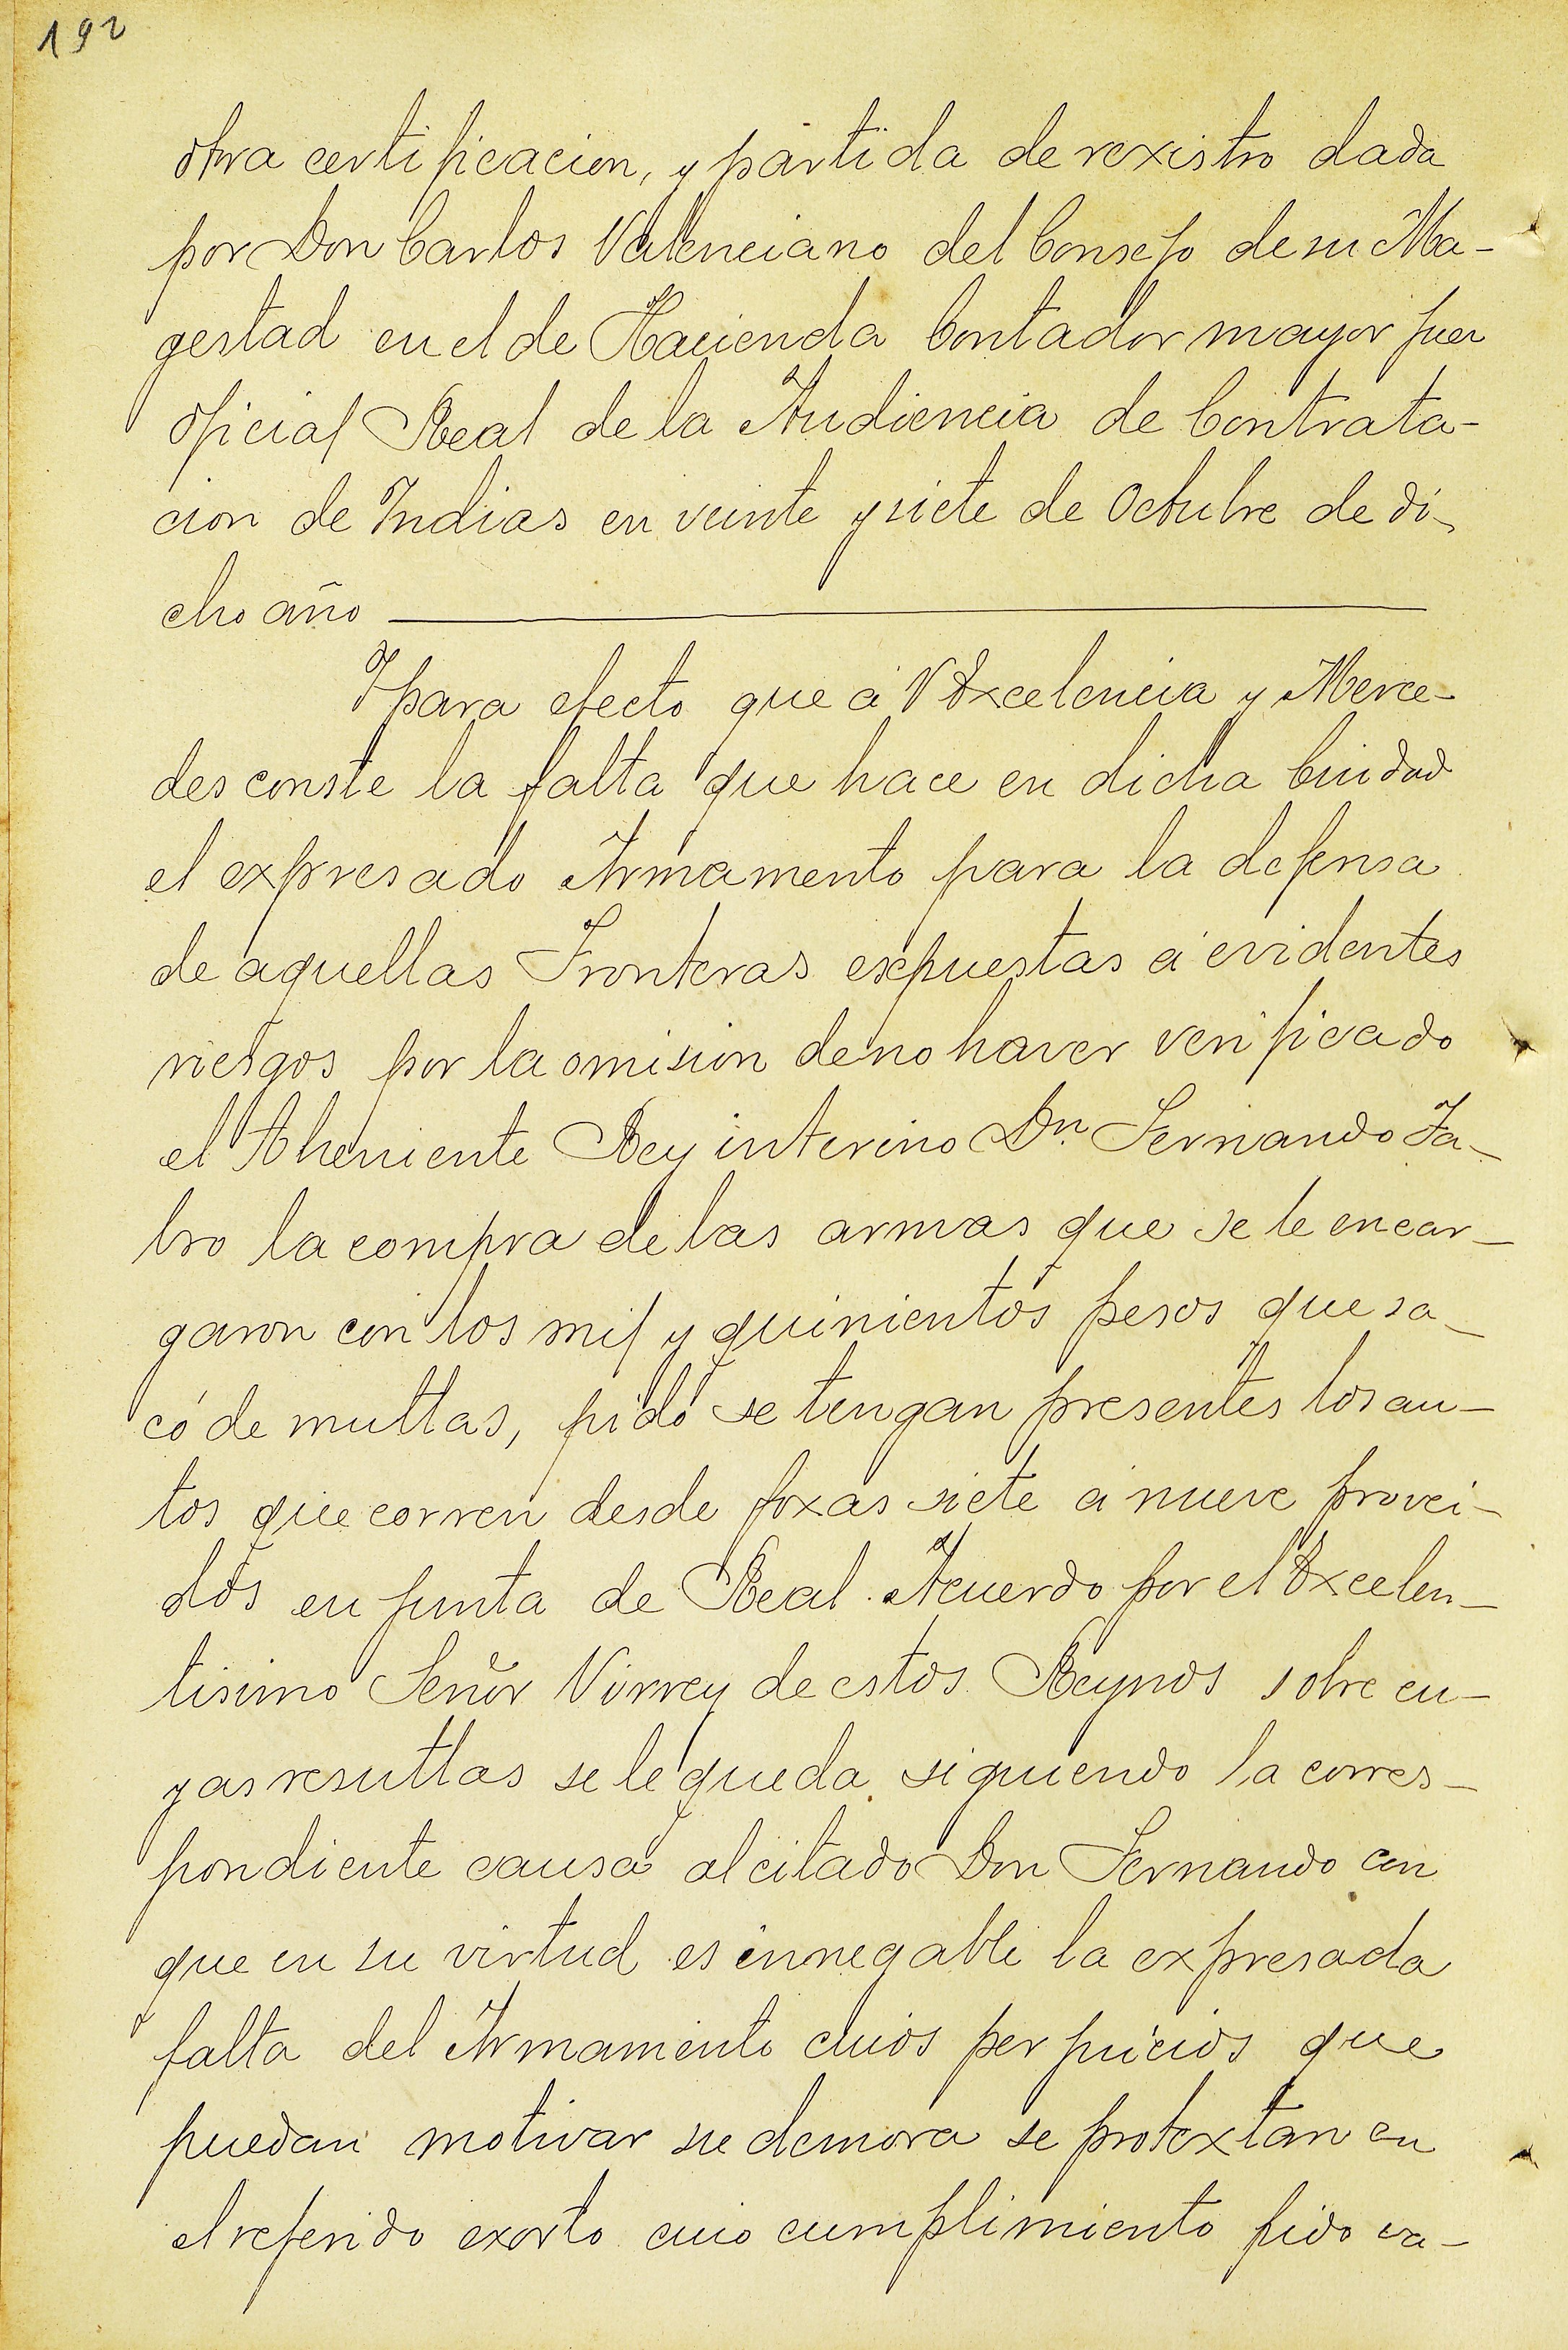 192
otra certificacion, y partida de rexistro dada
por Don Carlos Valenciano del Consejo de su Ma-
gestad en el de Hacienda Contador mayor juez
oficial Real de la Audiencia de Contrata-
cion de Indias en veinte y siete de Octubre de di-
cho año
Y para efecto que á V Excelencia y Merce-
des conste la falta que hace en dicha Ciudad
el expresado Armamento para la defensa
de aquellas Fronteras expuestas á evidentes
riesgos por la omision de no haver verificado
el Theniente Rey interino Dn. Fernando Fa-
bro la compra de las armas que se le encar-
garon con los mil y quinientos pesos que sa-
có de multas, pido se tengan presentes los au-
tos que corren desde foxas siete á nueve provei-
dos en junta de Real Acuerdo por el Excelen-
tisimo Señor Virrey de estos Reynos sobre cu-
yas resultas se le queda siguiendo la corres-
pondiente causa al citado Don Fernando con
que en su virtud es innegable la expresada
falta del Armamento cuios perjuicios que
puedan motivar su demora se protextan en
el referido exorto cuio cumplimiento pido va-